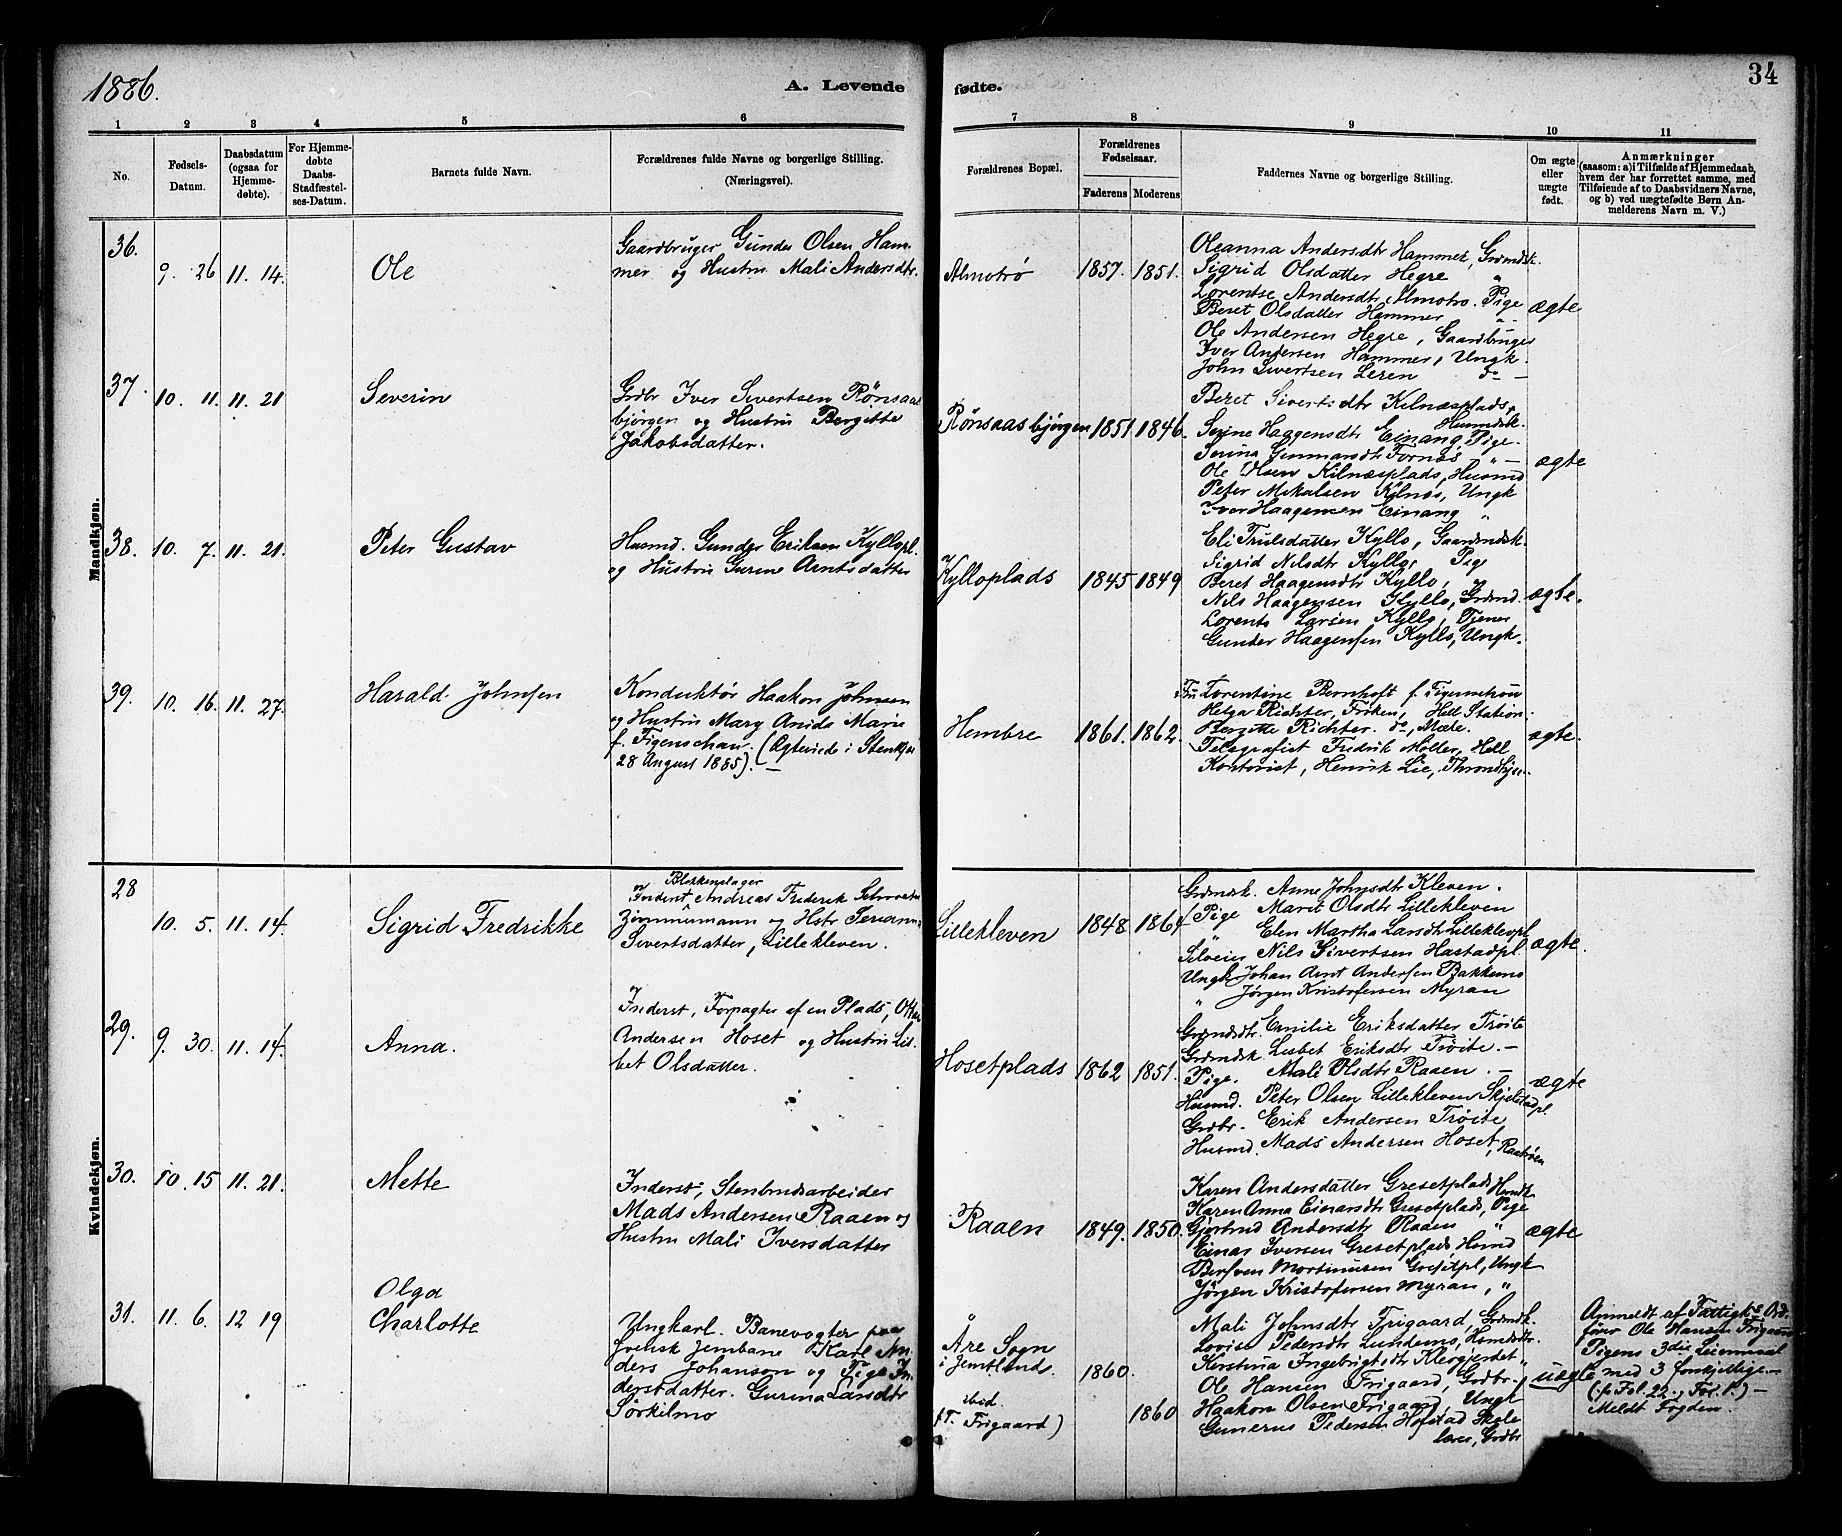 1886.
A. Levende
fødte.
34
1 2 3 4 5 6 7 8 9 10 11
No.
Fødsels-
Datum.
Daabsdatum
(ogsaa for
Hjemme-
døbte).
For Hjemme-
døbte
Daabs-
Stadfæstel-
ses-Datum.
Barnets fulde Navn.
Forældrenes fulde Navne og borgerlige Stilling.
(Næringsvei).
Forældrenes Bopæl.
Forældrenes
Fødselsaar.
Faderens Moderens
Faddernes Navne og borgerlige Stilling.
Om ægte
eller
uægte
født.
Anmærkninger
(saasom: a) i Tilfælde af Hjemmedaab,
hvem der har forrettet samme, med
Tilføiende af to Daabsvidners Navne,
og b) ved uægtefødte Børn An-
melderens Navn m. V.)
Mandkjøn.
36.
9. 26 11. 14.
Ole
Gaardbruger Gunder Olsen Ham-
mer og Hustru Mali Andersdtr.
Almotrø
1857. 1851.
Oleanna Andersdtr Hammer, Grdmdsk.
Sigrid Olsdatter Hegre "
Lorentse Andersdtr Almotrø. Pige
Beret Olsdatter Hammer "
Ole Andersen Hegre, Gaardbruger
Iver Andersen Hammer, Ungk.
John Sivertsen Leren do —
ægte
37.
10. 11. 11. 21
Severin
Grdbr Iver Sivertsen Rønsaas
bjørgen og Hustru Bergitte
Jakobsdatter.
Rønsaasbjørgen
1851 1846.
Beret Sivertsdtr Kilnæsplads,
Husmdsk.
Serine Haagensdtr Einang, Pige.
Serina Gunnarsdtr Fornæs " —
Ole Olsen Kilnæsplads, Husmd
Peter Mikalsen Kilnæs, Ungk
Iver Haagensen Einang "
ægte
38.
10. 7. 11. 21.
Peter Gustav
Husmd. Gunder Eriksen Kyllopl.
og Hustru Gurine Arntsdatter
Kylloplads
1845 1849
Eli Trulsdatter Kyllo, Gaardmdsk.
Sigrid Nilsdtr Kyllo, Pige
Beret Haagensdtr Kyllo,
Nils Haagensen Kyllo, Grdmd.
Lorents Larsen Kyllo, Tjener
Gunder Haagensen Kyllo, Ungk.
ægte.
39.
10. 16. 11. 27.
Harald Johnsen
Konduktør Haakon Johnsen
og Hustru Mary Marie
f. Figenschau. (Ægteviede i Stenkjær
28 August 1885). —
Hembre
1861. 1862.
Fru Lorentine Bernhoft f. Figenschau
Helga Richter, Frøken, Hell Station.
Bergitte Richter. do, Mære.
Telegrafist Fredrik Møller, Hell
Kontorist, Henrik Lie, Throndhjem
ægte.
Kvindekjøn.
28
10. 5. 11. 14.
Sigrid Fredrikke
Blikkenslager
Inderst, Andreas Frederik
Zimmermann og Hstr
Sivertsdatter, Lillekleven.
Lillekleven
1848 1864
Grdmdsk. Anne Johnsdtr Kleven.
Pige Marit Olsdtr Lillekleven
" Elen Martha Larsdtr Lilleklevpl
Selveier Nils Sivertsen Hastadpl.
Ungk Johan Arnt Andersen Bakkemo
" Jørgen Kristofersen Myran
ægte.
29.
9. 30. 11. 14.
Anna.
Inderst, Forpagter af en Plads,
Andersen Hoset og Hustru Lis-
bet Olsdatter.
Hosetplads
1862 1851.
Grdmdsdtr. Emilie Eriksdatter Trøite
Grdmdsk. Lisbet Eriksdtr Trøite. —
Pige. Mali Olsdtr Raaen. —
Husmd. Peter Olsen Lillekleven Skjelstadpl
Grdbr. Erik Andersen Trøite
Husmd. Mads Andersen Hoset,
ægte
30.
10. 15 11. 21.
Mette
Inderst, Stenbrudsarbeider
Mads Andersen Raaen og
Hustru Mali Iversdatter
Raaen
1849. 1850.
Karen Andersdatter Gresetplads
Karen Anna Einarsdtr Gresetplads, Pige
Gjertrud Andersdtr Raaen "
Einar Iversen Gresetplads, Husmd
Bersven Mortinusen, Ungk
Jørgen Kristofersen Myran, "
ægte
31.
11. 6. 12 19
Olga
Charlotte
Ungkarl. Banevogter paa
svensk Jernbane Karl An-
ders Johanson og Pige In-
derstdatter. Gurina Larsdtr
Sørkilmo
Åre Sogn
i Jemtland.
ibid.
(T. Frigaard)
1860.
1860
Mali Johnsdtr Frigaard, Grdmdsk.
Lovise Pedersdtr Lundemo, Husmdsdtr.
Kerstina Ingebrigtsdtr Klevgjerdet "
Ole Hansen Frigaard, Grdbr.
Haakon Olsen Frigaard, Ungk
Gunerus Pedersen Hofstad Skole-
lærer, Grdbr
uægte
Anmeldt af Fattigk.s Ord-
fører Ole Hansen Frigaard
Pigens 3die Leiermaal
med 3 forskjellige. —
(p. Fol. 22., For. 1.) —
Meldt Fogden.